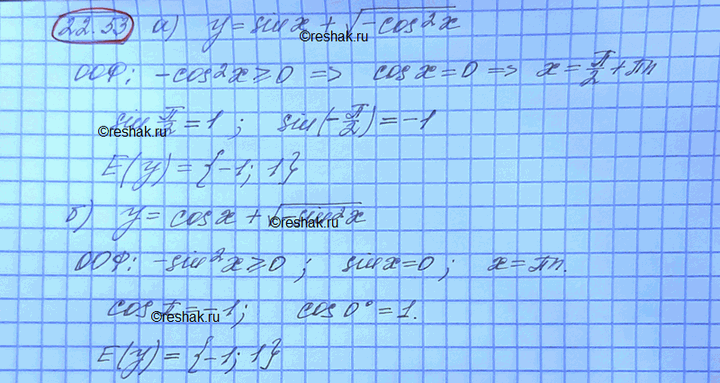 22.53 а) y = sin x + √(-cos²x)
ООФ: -cos²x ≥ 0 => cos x = 0 => x = π/2 + πn
sin π/2 = 1 ; sin(-π/2) = -1
©reshak.ru
©reshak.ru
E(y) = {-1; 1}
б) y = cos x + √(-sin²x)
©reshak.ru
ООФ: -sin²x ≥ 0 ; sin x = 0 ; x = πn.
cos π = -1 ; cos 0° = 1.
©reshak.ru
E(y) = {-1; 1}